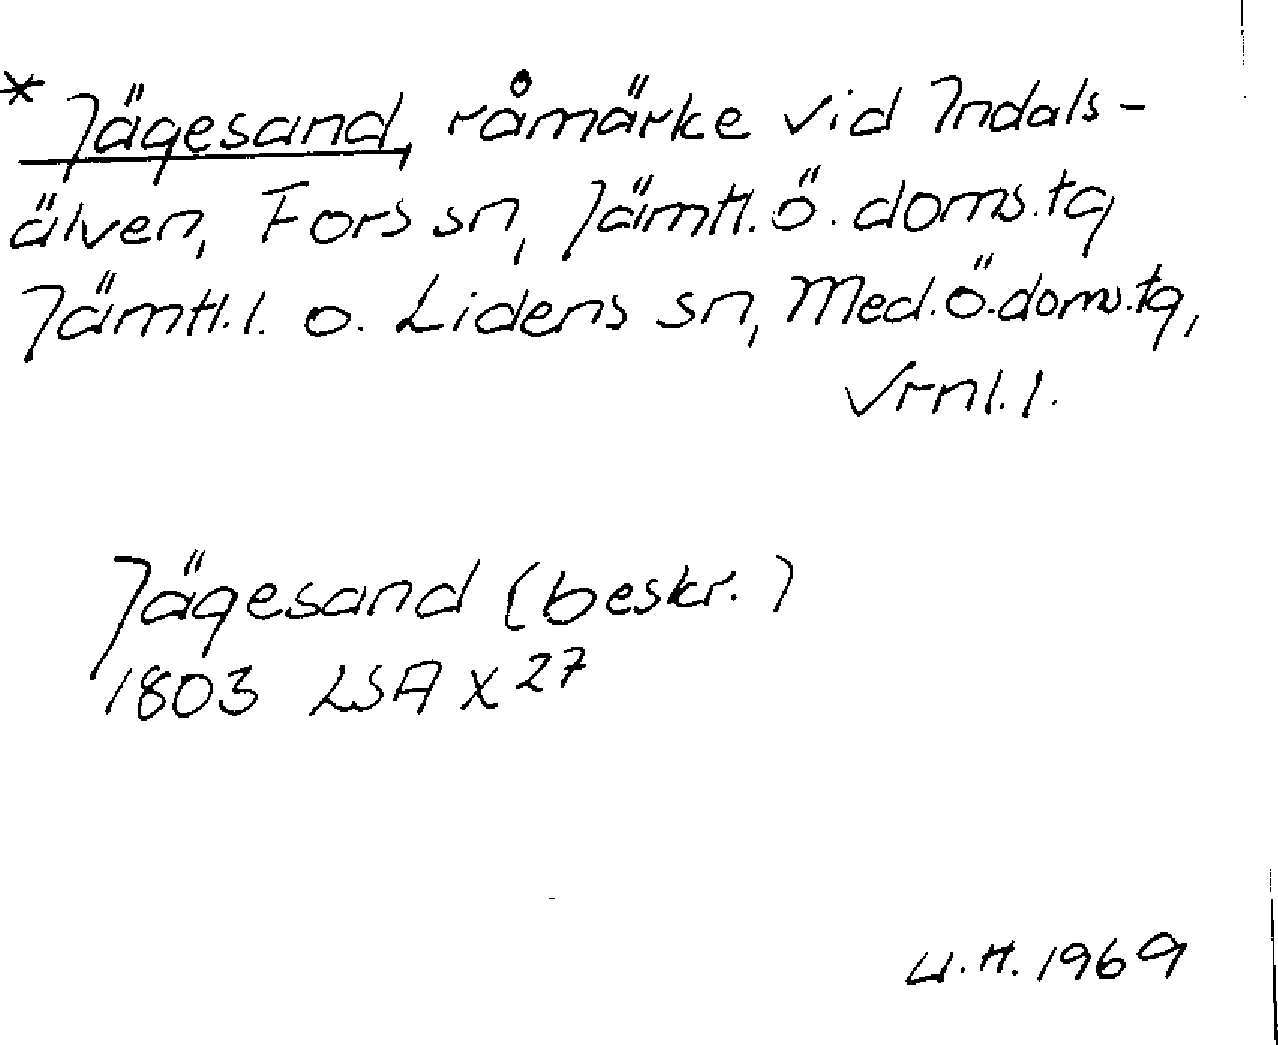 * Jägesand, råmärke vid Indals-
älven, Fors sn, Jämtl. ö. doms.tg
Jämtl. l. o. Lidens sn, Med. ö. doms.tg,
Vrnl. l.
Jägesand (beskr.)
1803 LSA X 27
U.H. 1969